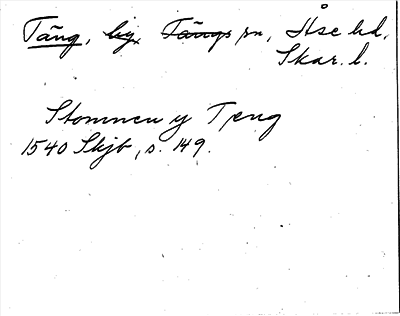 Tång, by, Tångs sn, Åse hd,
Skar. l.
Stommen y Tæng
1540 Skjb, s. 149.